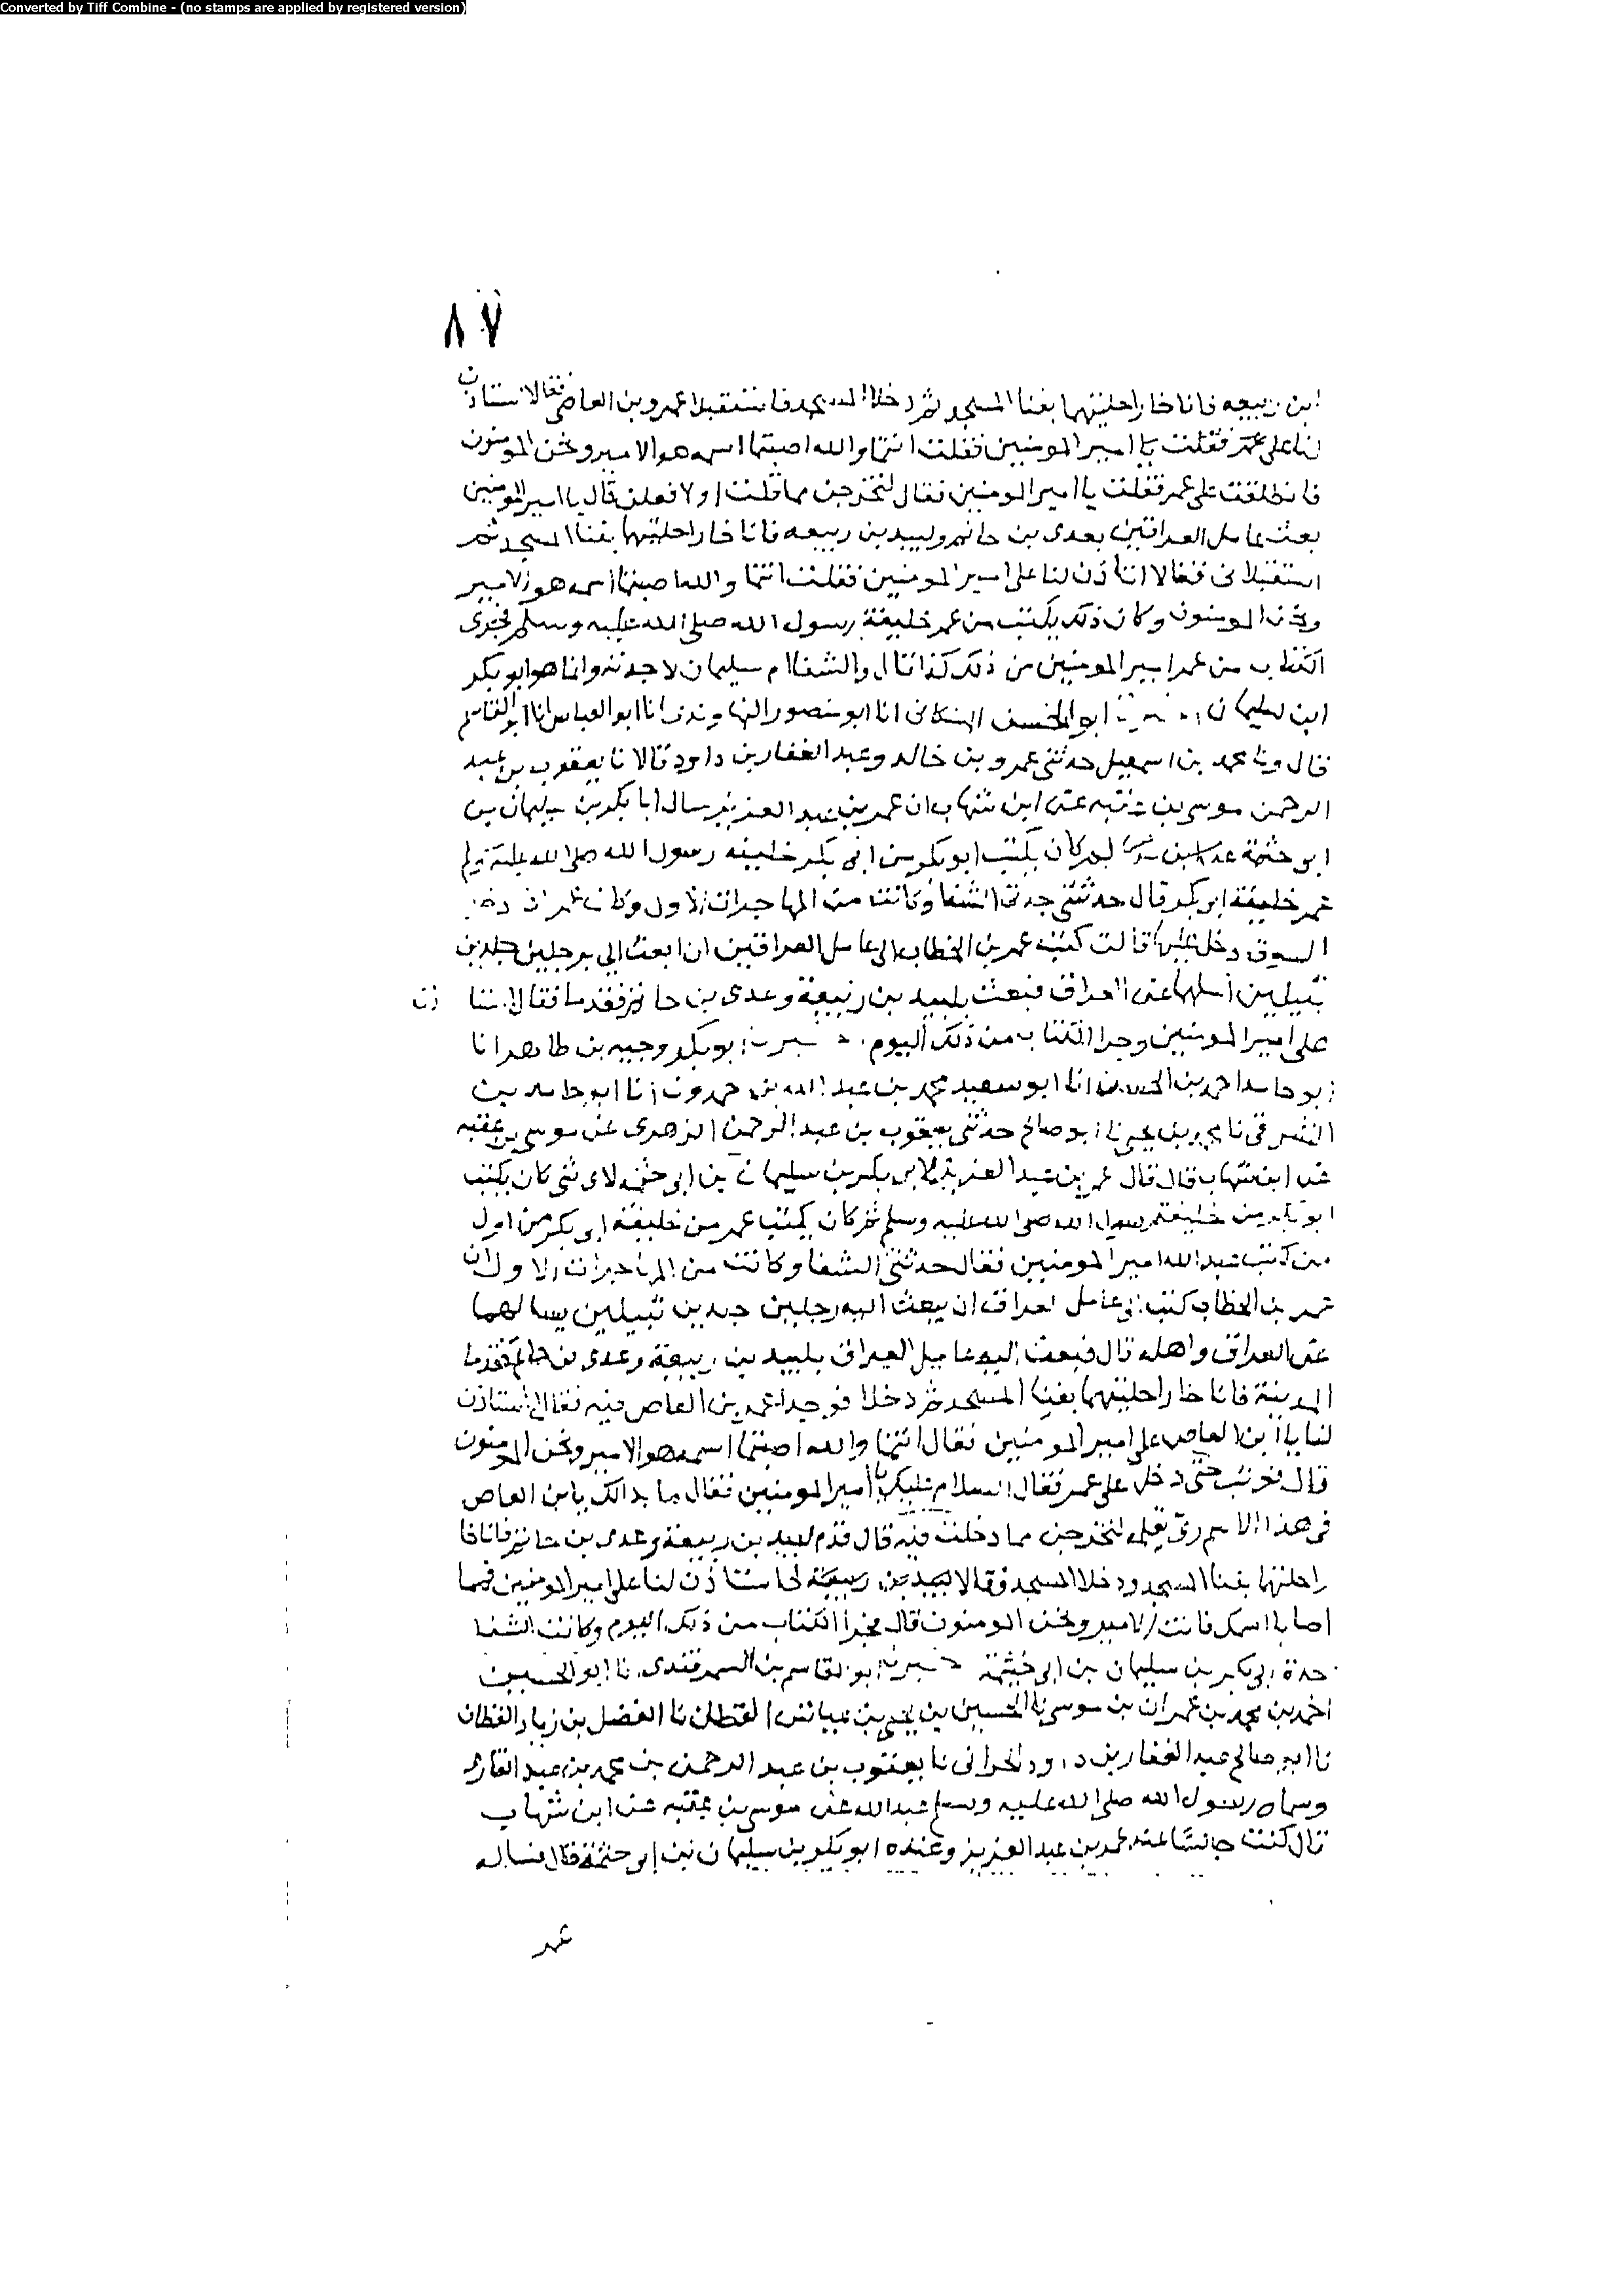 Converted by Tiff Combine - (no stamps are applied by registered version)
٨٧
ابن ربيعه فاناخا راحلتيهما بفنا المسجد ثم دخلا المسجد فاستقبلا عمرو بن العاص فقالا استاذن
لنا على عمر فقلت يا امير المومنين فقلت انتما والله اصبتما اسمه هو الامير ونحن المومنون
فانطلقت على عمر فقلت يا امير المومنين فقال لتخرجن مما قلت او لا فعلن قال يا امير المومنين
بعث عامل العراقين بعدى بن حاتم ولبيد بن ربيعه فاناخا راحلتيهما بفنا المسجد ثم
استقبلانى فقالا استاذن لنا على امير المومنين فقلت انتما والله اصبتما اسمه هو الامير
ونحن المومنون وكان ذلك يكتب من عمر خليفة رسول الله صلى الله عليه وسلم فجرى
الكتاب من عمر امير المومنين من ذلك كذا قال والشفا ام سليمان لا جدته وانما هو ابو بكر
ابن سليمان ابو الحسن انا ابو منصور النهاوندى انا ابو العباس انا ابو القاسم
قال ونا محمد بن اسمعيل حدثنى عمرو بن خالد وعبد الغفار بن داود قالا نا يعقوب بن عبد
الرحمن موسى بن عقبه عن ابن شهاب ان عمر بن عبد العزيز سال ابا بكر بن سليمان بن
ابو حثمة لم كان يكتب ابو بكر من ابى بكر خليفه رسول الله صلى الله عليه وسلم
عمر خليفة ابو بكر قال حدثتنى جدتى الشفا وكانت من المهاجرات الاول وكان عمر اذ دخل
السوق دخل عليها قالت كتب عمر بن الخطاب الى عامل العراقين ان ابعث الى برجلين جلدين
نبيلين اسلهما عن العراق فبعث بلبيد بن ربيعة وعدى بن حاتم فقدما فقالا استا ذن
على امير المومنين وجرا الكتاب من ذلك اليوم. ابو بكر وجيه بن طاهر انا
ابو حامد احمد بن الحسن انا ابو سعيد محمد بن عبد الله بن حمدون انا ابو حامد بن
الشرقى نا محمد بن يحيى نا ابو صالح حدثنى يعقوب بن عبد الرحمن الزهرى عن موسى بن عقبه
عن ابن شهاب قال قال عمر بن عبد العزيز لابى بكر بن سليمان بن ابى حثمه لاى شى كان يكتب
ابو بكر من خليفة رسول الله صلى الله عليه وسلم ثم كان يكتب عمر من خليفة ابى بكر من اول
من كتب عبد الله امير المومنين فقال حدثتنى الشفا وكانت من المهاجرات الاول ان
عمر بن الخطاب كتب الى عامل العراق ان يبعث اليه رجلين جلدين نبيلين يسالهما
عن العراق واهله قال فبعث اليه عامل العراق بلبيد بن ربيعة وعدى بن حاتم فقدما
المدينة فاناخا راحلتيهما بفنا المسجد ثم دخلا فوجدا عمرو بن العاص فيه فقالا استاذن
لنا يا ابن العاص على امير المومنين فقال انتما والله اصبتما اسمه هو الامير ونحن المومنون
قال فوثب حتى دخل على عمر فقال السلام عليك يا امير المومنين فقال ما بدالك يا بن العاص
فى هذا الاسم ربى يعلم لتخرجن مما دخلت فيه قال قدم لبيد بن ربيعة وعدى بن حاتم فاناخا
راحلتهما بفنا المسجد ودخلا المسجد فقالا استاذن لنا على امير المومنين فهما
اصابا اسمك فانت الامير ونحن المومنون قال فجرا الكتاب من ذلك اليوم وكانت الشفا
جدة ابى بكر بن سليمان بن ابى خيثمة ابو القاسم بن السمرقندى نا ابو الحسين
احمد بن محمد بن عمران بن موسى نا الحسين بن يحيى بن عياش القطان نا الفضل بن زياد القطان
نا ابو صالح عبد الغفار بن داود الحرانى نا يعقوب بن عبد الرحمن بن محمد بن عبد القارى
وسماه رسول الله صلى الله عليه وسلم عبد الله عن موسى بن عقبه عن ابن شهاب
قال كنت جالسًا عند عمر بن عبد العزيز وعنده ابو بكر بن سليمان بن ابى حثمة فقال فساله
عمر